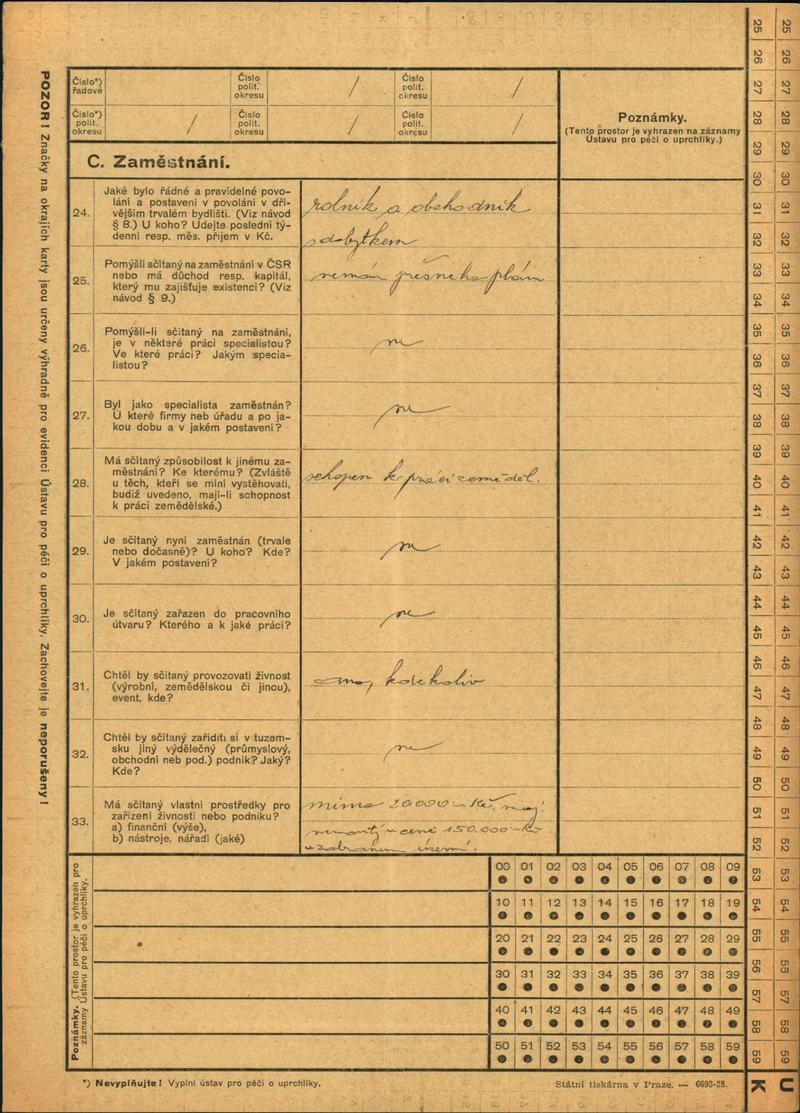 Číslo*) řadové
Číslo polit. okresu
/
Číslo polit. okresu
/
Číslo*) polit. okresu
/
Číslo polit. okresu
/
Číslo polit. okresu
/
Poznámky.
(Tento prostor je vyhrazen na záznamy
Ústavu pro péči o uprchlíky.)
C. Zaměstnání.
24.
Jaké bylo řádné a pravidelné povo-
lání a postavení v povolání v dří-
vějším trvalém bydlišti. (Viz návod
§ 8.) U koho? Udejte poslední tý-
denní resp. měs. příjem v Kč.
rolník a obchodník
s dobytkem
25.
Pomýšlí sčítaný na zaměstnání v ČSR
nebo má důchod resp. kapitál,
který mu zajišťuje existenci? (Viz
návod § 9.)
nemám přesného plánu
26.
Pomýšlí-li sčítaný na zaměstnání,
je v některé práci specialistou?
Ve které práci? Jakým specia-
listou?
ne
27.
Byl jako specialista zaměstnán?
U které firmy neb úřadu a po ja-
kou dobu a v jakém postavení?
ne
28.
Má sčítaný způsobilost k jinému za-
městnání? Ke kterému? (Zvláště
u těch, kteří se míní vystěhovati,
budiž uvedeno, mají-li schopnost
k práci zemědělské.)
schopen k práci zeměděl.
29.
Je sčítaný nyní zaměstnán (trvale
nebo dočasně)? U koho? Kde?
V jakém postavení?
ne
30.
Je sčítaný zařazen do pracovního
útvaru? Kterého a k jaké práci?
ne
31.
Chtěl by sčítaný provozovati živnost
(výrobní, zemědělskou či jinou),
event. kde?
ano, kdekoliv
32.
Chtěl by sčítaný zaříditi si v tuzem-
sku jiný výdělečný (průmyslový,
obchodní neb pod.) podnik? Jaký?
Kde?
ne
33.
Má sčítaný vlastní prostředky pro
zařízení živnosti nebo podniku?
a) finanční (výše),
b) nástroje, nářadí (jaké)
mimo 20.000 – Kč
v ceně 150.000 – Kč
v zabraném území.
Poznámky. (Tento prostor je vyhrazen pro
záznamy Ústavu pro péči o uprchlíky.
00 01 02 03 04 05 06 07 08 09
10 11 12 13 14 15 16 17 18 19
20 21 22 23 24 25 26 27 28 29
30 31 32 33 34 35 36 37 38 39
40 41 42 43 44 45 46 47 48 49
50 51 52 53 54 55 56 57 58 59
*) Nevyplňujte! Vyplní ústav pro péči o uprchlíky.
Státní tiskárna v Praze. — 6693-38.
POZOR! Značky na okrajích karty jsou určeny výhradně pro evidenci Ústavu pro péči o uprchlíky. Zachovejte je neporušeny!
25 26 27 28 29 30 31 32 33 34 35 36 37 38 39 40 41 42 43 44 45 46 47 48 49 50 51 52 53 54 55 56 57 58 59 K
25 26 27 28 29 30 31 32 33 34 35 36 37 38 39 40 41 42 43 44 45 46 47 48 49 50 51 52 53 54 55 56 57 58 59 U